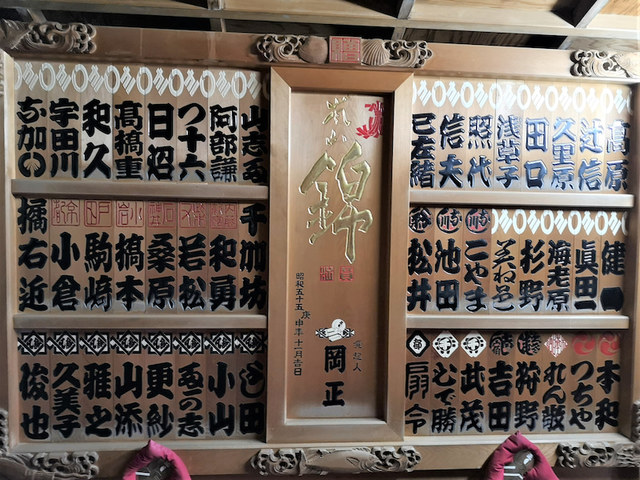 高原
辻信
久里原
田口
浅草子
照代
信夫
健一
眞田一
海老原
杉野
こやま
池田
松井
本和
つちや
れん歌
狩野
吉田
武茂
ひで勝
扇令
錦
昭和五十五庚申年十一月吉日
発起人
岡正
山志る
阿部謙
つ十六
日沼
高橋重
和久
宇田川
志加〇
千加坊
和勇
若松
桑原
橋本
駒崎
小倉
橘右近
小山
更紗
山添
雅之
久美子
俊也